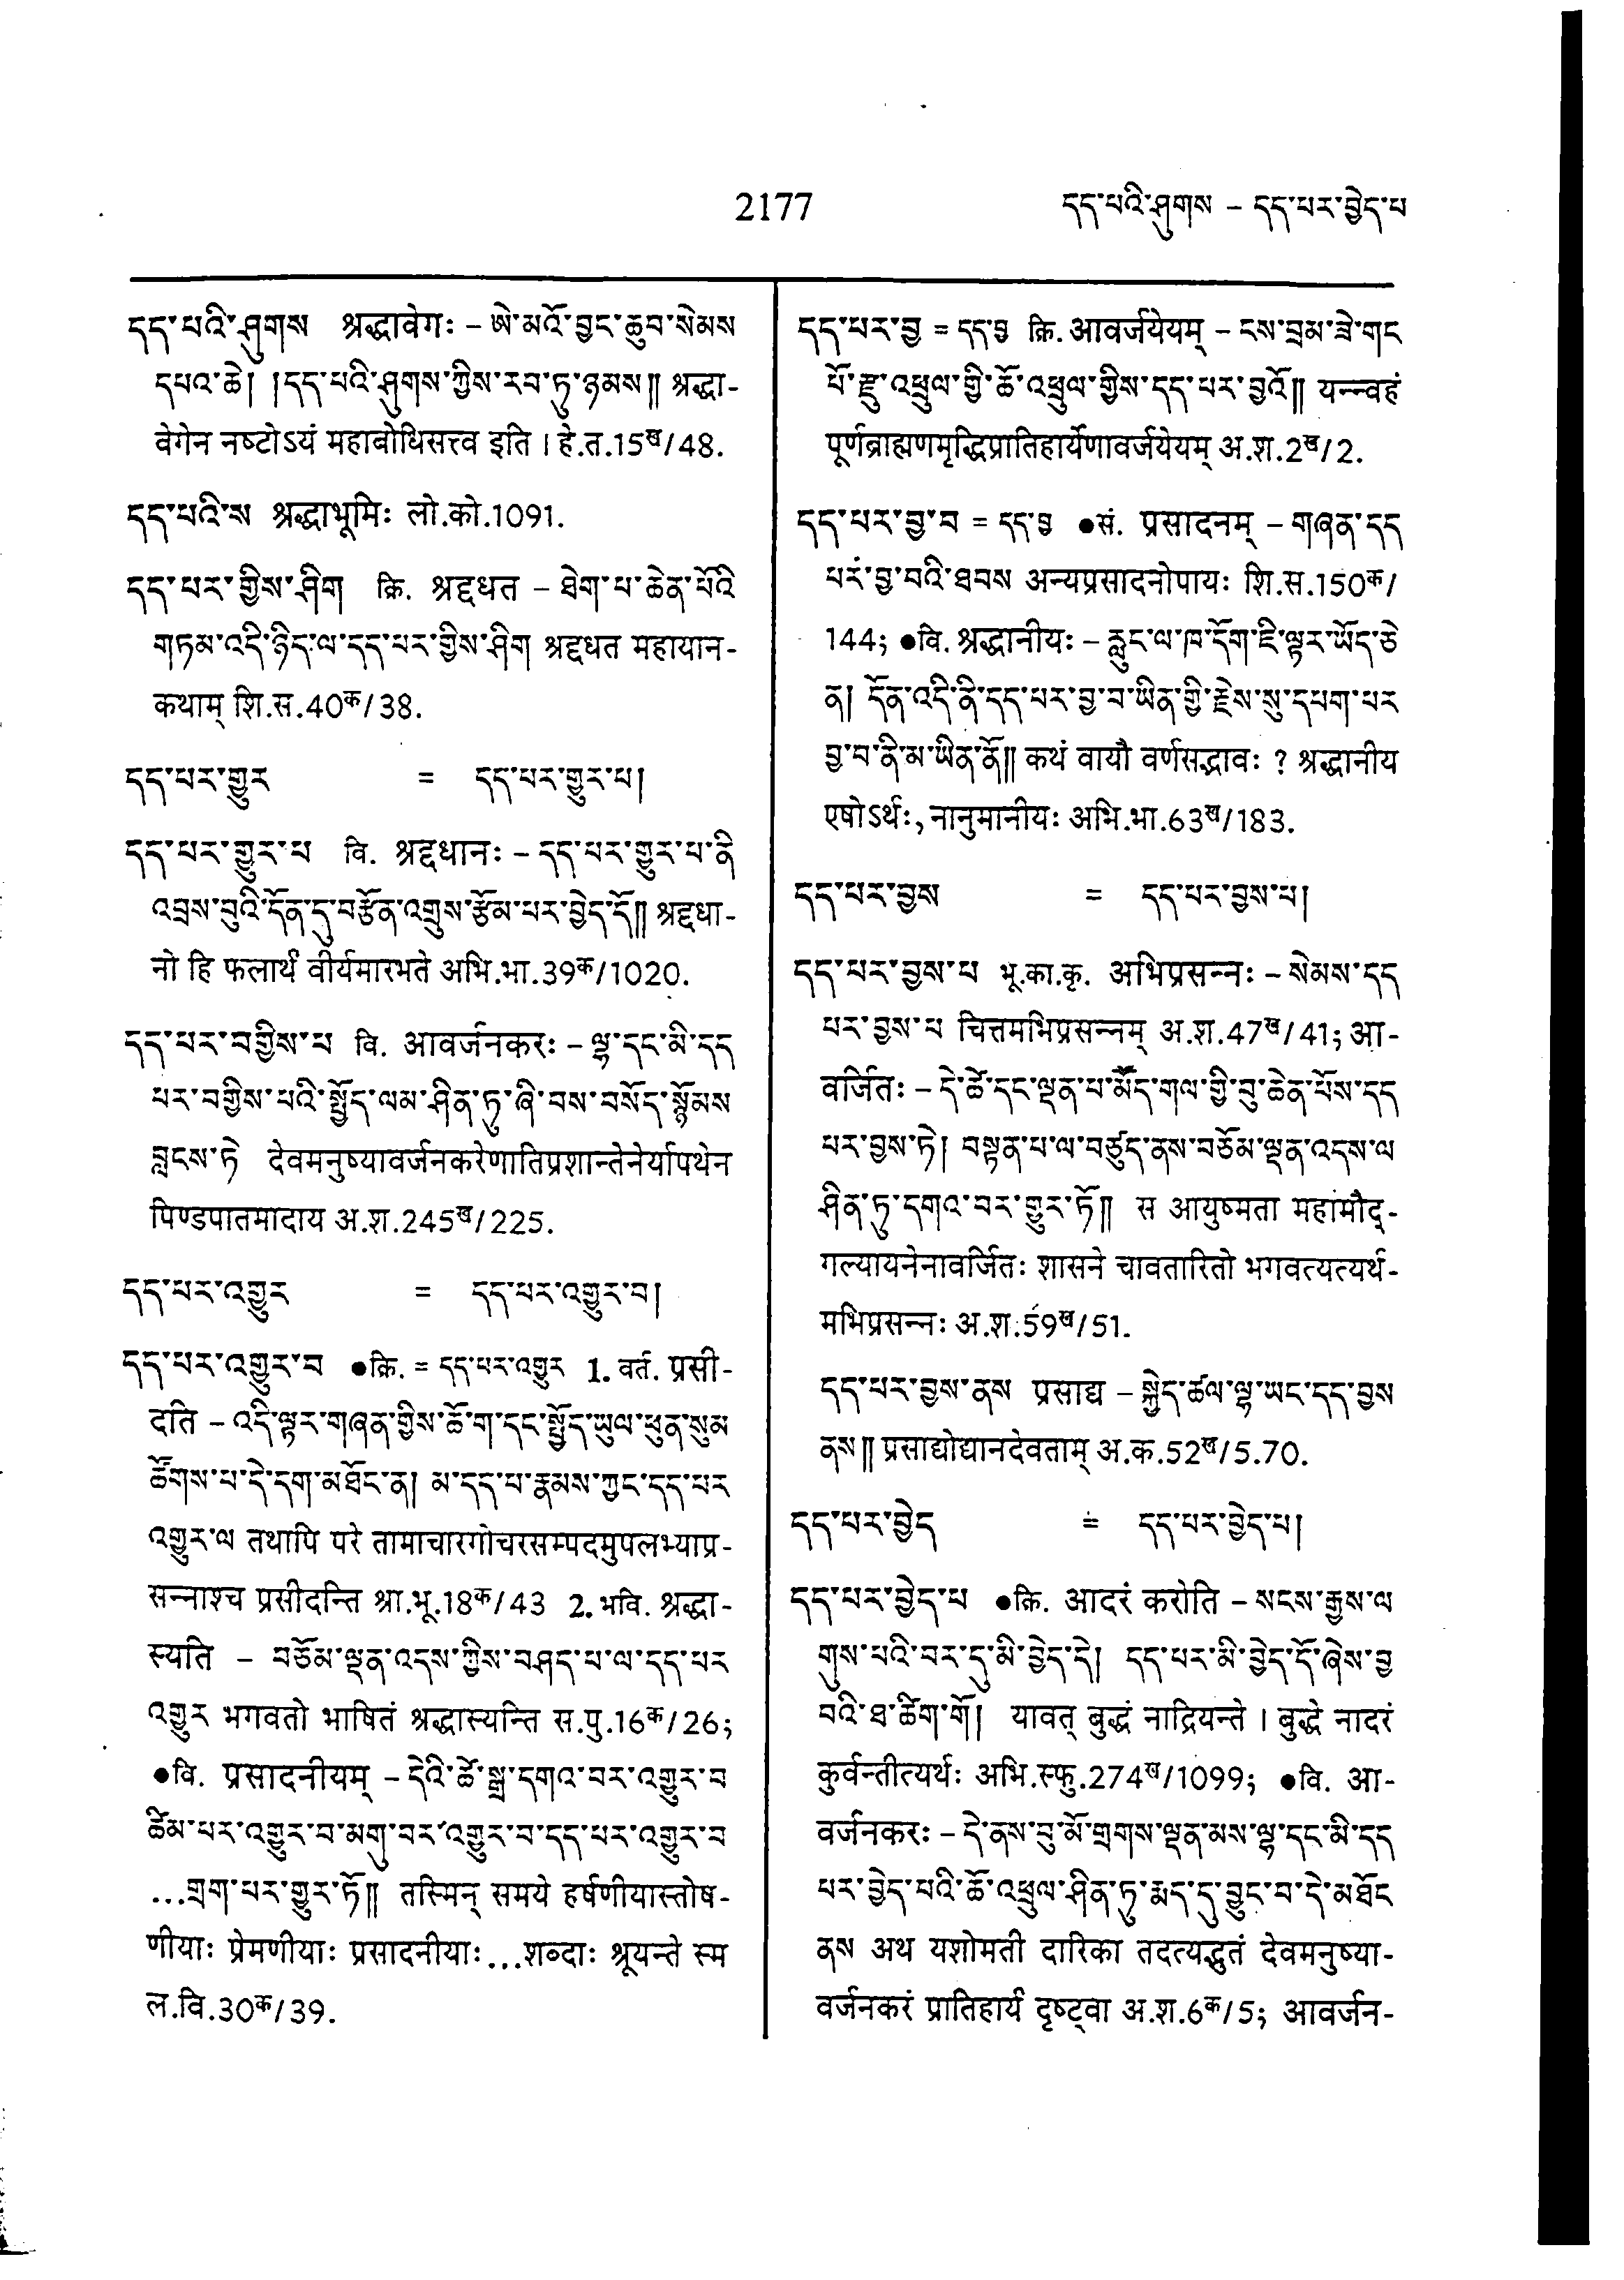 2177
དད་པའི་ཤུགས – དད་པར་བྱེད་པ
དད་པའི་ཤུགས श्रद्धावेगः – ཨེ་མའོ་བྱང་ཆུབ་སེམས
དཔའ་ཆེ། །དད་པའི་ཤུགས་ཀྱིས་རབ་ཏུ་ཉམས༎ श्रद्धा-
वेगेन नष्टोऽयं महाबोधिसत्त्व इति । हे.त.15ख/48.
དད་པའི་ས श्रद्धाभूमिः लो.को.1091.
དད་པར་གྱིས་ཤིག क्रि. श्रद्दधत – ཐེག་པ་ཆེན་པོའི
གཏམ་འདི་ཉིད་ལ་དད་པར་གྱིས་ཤིག श्रद्दधत महायान-
कथाम् शि.स.40क/38.
དད་པར་གྱུར = དད་པར་གྱུར་པ།
དད་པར་གྱུར་པ वि. श्रद्दधानः – དད་པར་གྱུར་པ་ནི
འབྲས་བུའི་དོན་དུ་བརྩོན་འགྲུས་རྩོམ་པར་བྱེད་དོ༎ श्रद्दधा-
नो हि फलार्थं वीर्यमारभते अभि.भा.39क/1020.
དད་པར་བགྱིས་པ वि. आवर्जनकरः – ལྷ་དང་མི་དད
པར་བགྱིས་པའི་སྤྱོད་ལམ་ཤིན་ཏུ་ཞི་བས་བསོད་སྙོམས
བླངས་ཏེ देवमनुष्यावर्जनकरेणातिप्रशान्तेनेर्यापथेन
पिण्डपातमादाय अ.श.245ख/225.
དད་པར་འགྱུར = དད་པར་འགྱུར་བ།
དད་པར་འགྱུར་བ ●क्रि. = དད་པར་འགྱུར 1. वर्त. प्रसी-
दति – འདི་ལྟར་གཞན་གྱིས་ཆོ་ག་དང་སྤྱོད་ཡུལ་ཕུན་སུམ
ཚོགས་པ་དེ་དག་མཐོང་ན། མ་དད་པ་རྣམས་ཀྱང་དད་པར
འགྱུར་ལ तथापि परे तामाचारगोचरसम्पदमुपलभ्याप्र-
सन्नाश्च प्रसीदन्ति श्रा.भू.18क/43 2. भवि. श्रद्धा-
स्यति – བཅོམ་ལྡན་འདས་ཀྱིས་བཤད་པ་ལ་དད་པར
འགྱུར भगवतो भाषितं श्रद्धास्यन्ति स.पु.16क/26;
●वि. प्रसादनीयम् – དེའི་ཚེ་སྒྲ་དགའ་བར་འགྱུར་བ
ཚིམ་པར་འགྱུར་བ་མགུ་བར་འགྱུར་བ་དད་པར་འགྱུར་བ
...གྲག་པར་གྱུར་ཏོ༎ तस्मिन् समये हर्षणीयास्तोष-
णीयाः प्रेमणीयाः प्रसादनीयाः...शब्दाः श्रूयन्ते स्म
ल.वि.30क/39.
དད་པར་བྱ = དད་བྱ क्रि. आवर्जयेयम् – ངས་བྲམ་ཟེ་གང
པོ་རྫུ་འཕྲུལ་གྱི་ཆོ་འཕྲུལ་གྱིས་དད་པར་བྱའོ༎ यन्न्वहं
पूर्णब्राह्मणमृद्धिप्रातिहार्येणावर्जयेयम् अ.श.2ख/2.
དད་པར་བྱ་བ = དད་བྱ ●सं. प्रसादनम् – གཞན་དད
པར་བྱ་བའི་ཐབས अन्यप्रसादनोपायः शि.स.150क/
144; ●वि. श्रद्धानीयः – རླུང་ལ་ཁ་དོག་ཇི་ལྟར་ཡོད་ཅེ
ན། དོན་འདི་ནི་དད་པར་བྱ་བ་ཡིན་གྱི་རྗེས་སུ་དཔག་པར
བྱ་བ་ནི་མ་ཡིན་ནོ༎ कथं वायौ वर्णसद्भावः ? श्रद्धानीय
एषोऽर्थः, नानुमानीयः अभि.भा.63ख/183.
དད་པར་བྱས = དད་པར་བྱས་པ།
དད་པར་བྱས་པ भू.का.कृ. अभिप्रसन्नः – སེམས་དད
པར་བྱས་པ चित्तमभिप्रसन्नम् अ.श.47ख/41; आ-
वर्जितः – དེ་ཚེ་དང་ལྡན་པ་མཽད་གལ་གྱི་བུ་ཆེན་པོས་དད
པར་བྱས་ཏེ། བསྟན་པ་ལ་བཙུད་ནས་བཅོམ་ལྡན་འདས་ལ
ཤིན་ཏུ་དགའ་བར་གྱུར་ཏོ༎ स आयुष्मता महामौद्-
गल्यायनेनावर्जितः शासने चावतारितो भगवत्यत्यर्थ-
मभिप्रसन्नः अ.श.59ख/51.
དད་པར་བྱས་ནས प्रसाद्य – སྐྱེད་ཚལ་ལྷ་ཡང་དད་བྱས
ནས༎ प्रसाद्योद्यानदेवताम् अ.क.52ख/5.70.
དད་པར་བྱེད = དད་པར་བྱེད་པ།
དད་པར་བྱེད་པ ●क्रि. आदरं करोति – སངས་རྒྱས་ལ
གུས་པའི་བར་དུ་མི་བྱེད་དེ། དད་པར་མི་བྱེད་དོ་ཞེས་བྱ
བའི་ཐ་ཚིག་གོ། यावत् बुद्धं नाद्रियन्ते । बुद्धे नादरं
कुर्वन्तीत्यर्थः अभि.स्फु.274ख/1099; ●वि. आ-
वर्जनकरः – དེ་ནས་བུ་མོ་གྲགས་ལྡན་མས་ལྷ་དང་མི་དད
པར་བྱེད་པའི་ཆོ་འཕྲུལ་ཤིན་ཏུ་རྨད་དུ་བྱུང་བ་དེ་མཐོང
ནས अथ यशोमती दारिका तदत्यद्भुतं देवमनुष्या-
वर्जनकरं प्रातिहार्यं दृष्ट्वा अ.श.6क/5; आवर्जन-